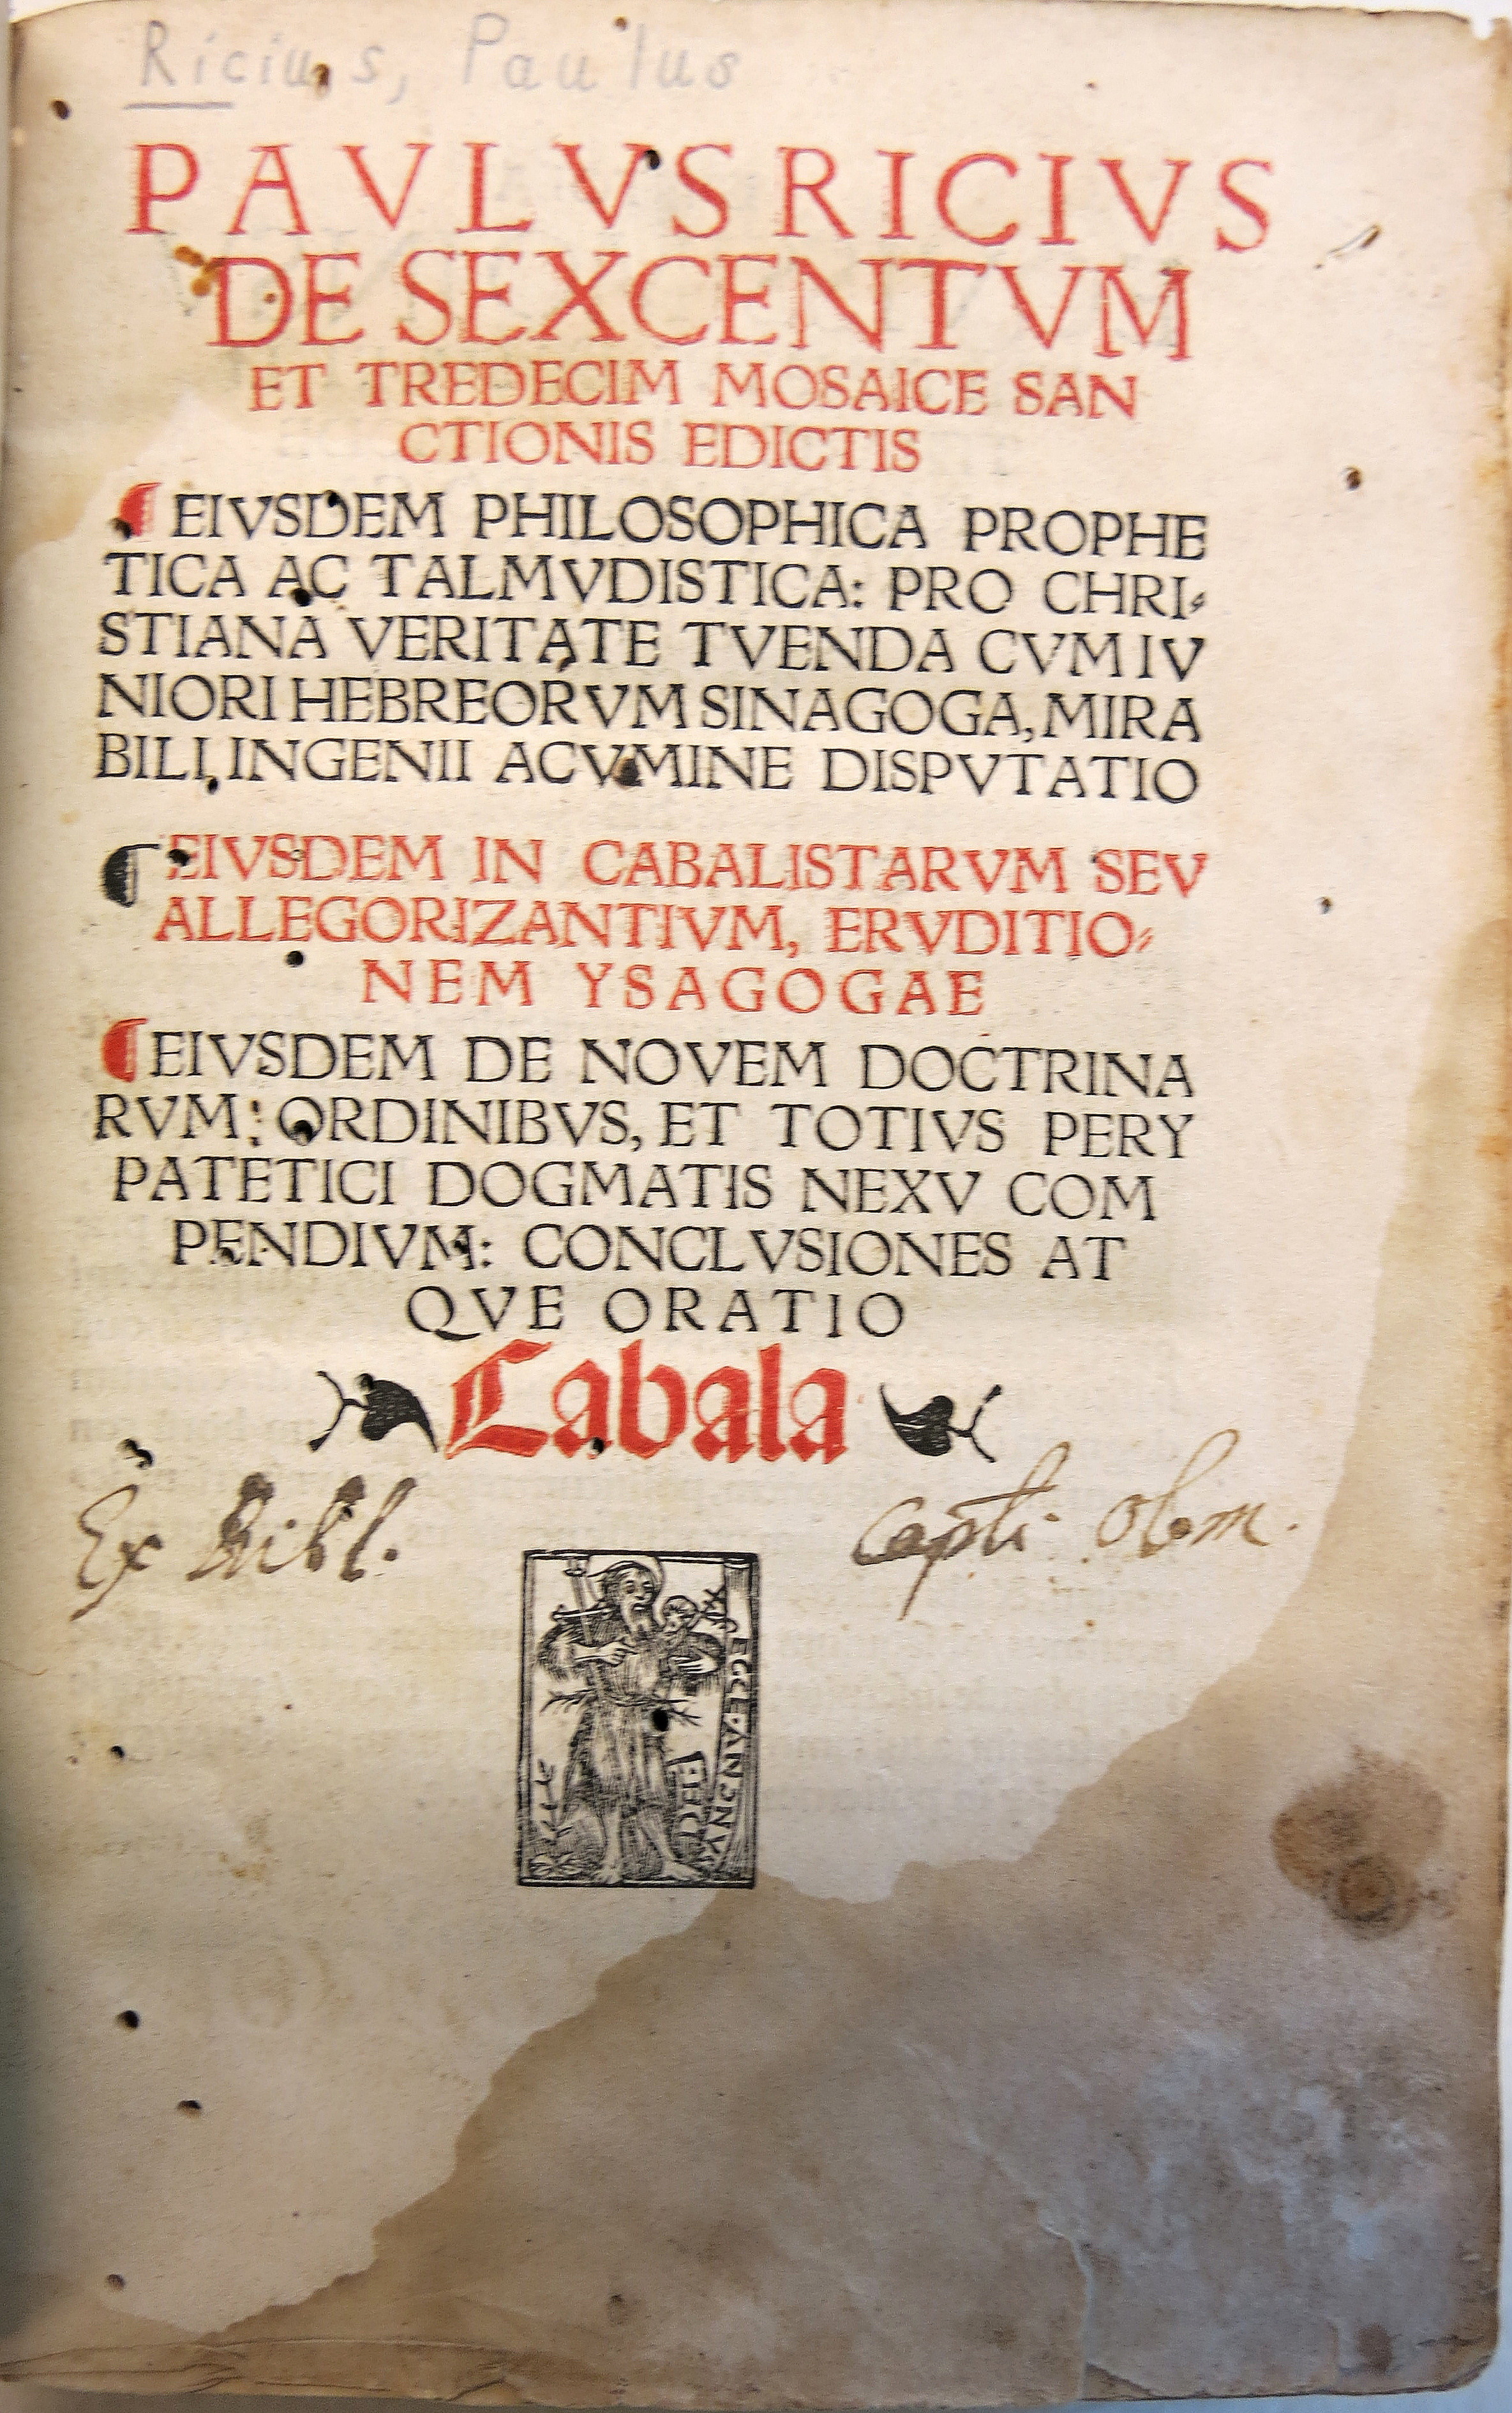 Ricius, Paulus
PAVLVS RICIVS
DE SEXCENTVM
ET TREDECIM MOSAICE SAN
CTIONIS EDICTIS
¶ EIVSDEM PHILOSOPHICA PROPHE
TICA AC TALMVDISTICA: PRO CHRI⸗
STIANA VERITATE TVENDA CVM IV
NIORI HEBREORVM SINAGOGA, MIRA
BILI, INGENII ACVMINE DISPVTATIO
¶ EIVSDEM IN CABALISTARVM SEV
ALLEGORIZANTIVM, ERVDITIO⸗
NEM YSAGOGAE
¶ EIVSDEM DE NOVEM DOCTRINA
RVM: ORDINIBVS, ET TOTIVS PERY
PATETICI DOGMATIS NEXV COM
PENDIVM: CONCLVSIONES AT
QVE ORATIO
Cabala
Ex Bibl. Capli. Olom.
ECCE. ANGNVS